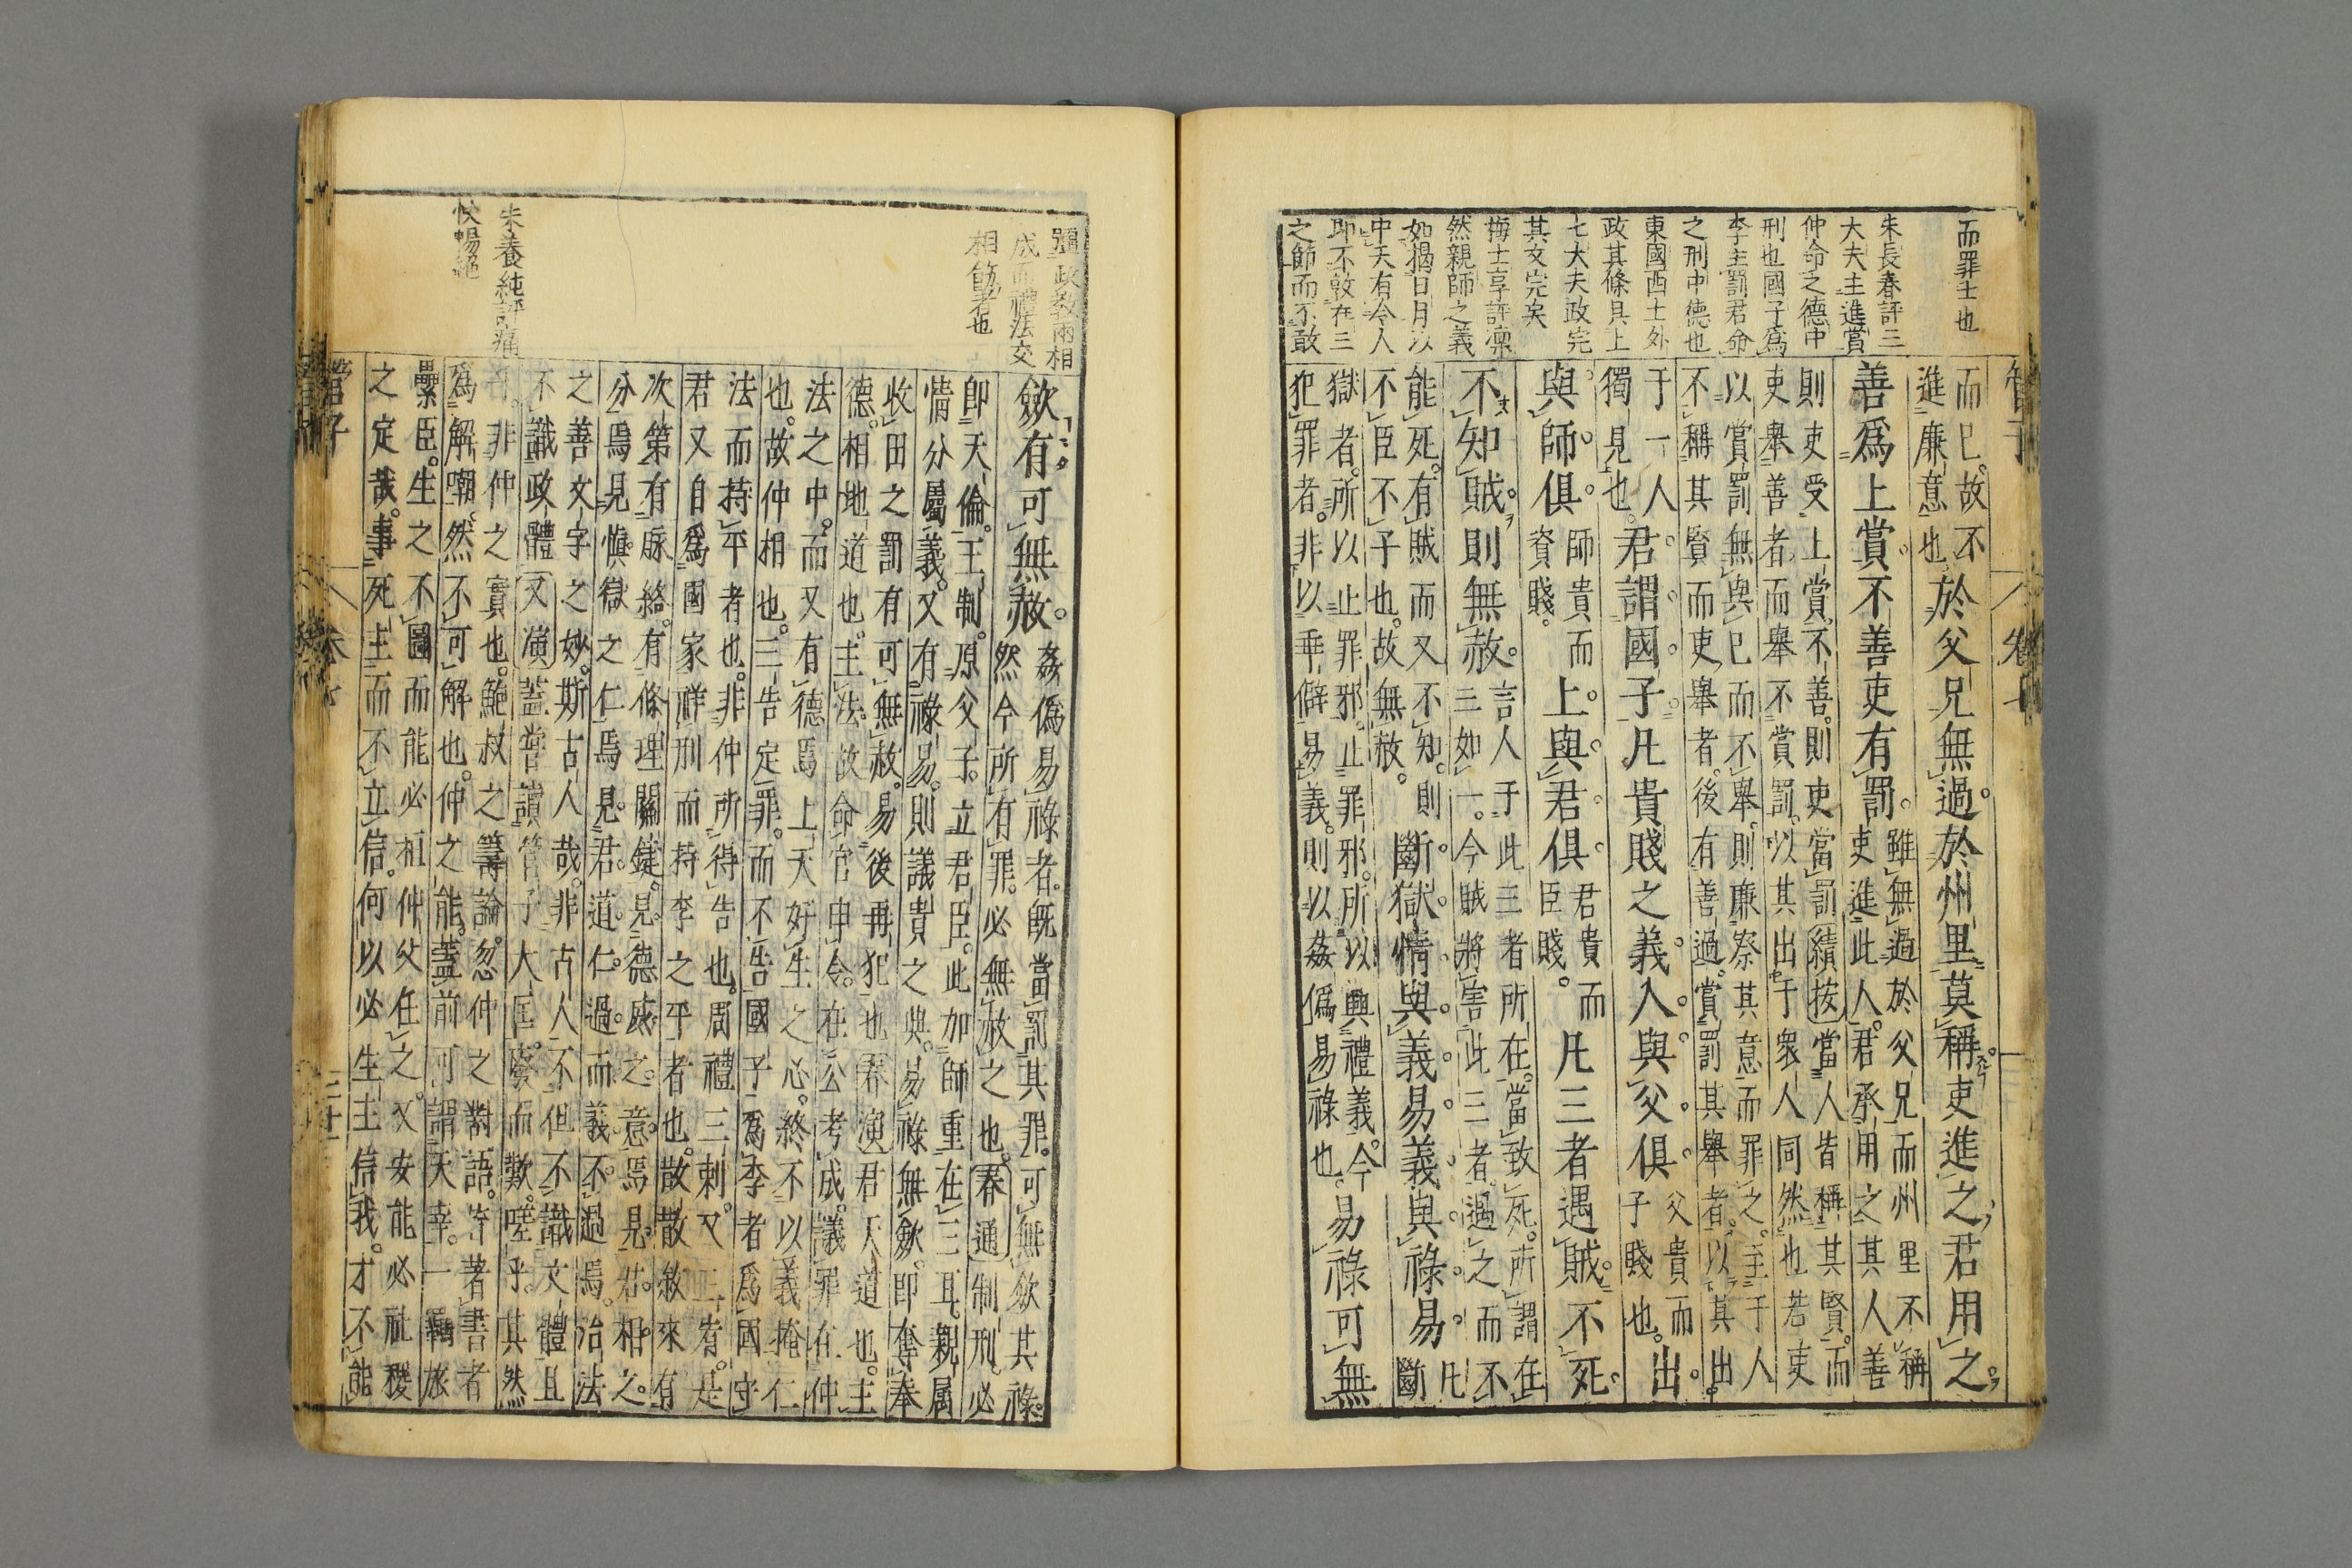 而罪士也
朱長春評三
大夫主進賞
仲命之德中
刑也國子爲
李主罰君命
之刑中德也
東國西土外
政其條具上
七大夫政完
其文完矣
梅士享評凜
然親師之義
如揭日月以
中天有今人
即不敦在三
之節而不敢
管子
卷七
而已故不
進廉意也
於父兄無過於州里莫稱吏進之君用之
善爲上賞不善吏有罰
雖無過於父兄而州里不稱
吏進此人君承用之其人善
則吏受上賞不善則吏當罰績按當人皆稱其賢而
吏舉善者而舉不賞罰以其出于衆人同然也若吏
以賞罰無與已而不舉則廉察其意而罪之主于人
不稱其賢而吏舉者後有善過賞罰其舉者以其出
于一人
獨見也
君謂國子凡貴賤之義入與父俱
父貴而
子賤也
出
與師俱
師貴而
資賤
上與君俱
君貴而
臣賤
凡三者遇賊不死
不知賊則無赦
言人于此三者所在當致死所謂在
三如一今賊將害此三者遇之而不
能死有賊而又不知則
不臣不子也故無赦
斷獄情與義易義與祿易
凡
斷
獄者所以止罪邪止罪邪所以興禮義今
犯罪者非以乖僻易義則以姦僞易祿也
易祿可無
彊政教兩相
成而禮法交
相飭者也
朱養純評痛
快暢絕
斂有可無赦
姦僞易祿者既當罰其罪可無斂其祿
然今所有罪必無赦之也春通制刑必
即天倫王制原父子立君臣此加師重在三耳親属
情分屬義又有祿易則議貴之典易祿無斂即奪奉
收田之罰有可無赦易後再犯也春演君天道也主
德相地道也主法故命官申令在公考成議罪在仲
法之中而又有德焉上天好生之心終不以義掩仁
也故仲相也三告定罪而不告國子爲李者爲國守
法而持平者也非仲所得告也周禮三刺又三宥是
君又自爲國家祥刑而持李之平者也散散敘來有
次第有脉絡有條理關鍵見德威之意焉見君相之
分焉見慎獄之仁焉見君道仁過而義不過焉治法
之善文字之妙斯古人哉非古人不但不識文體且
不識政體又演蓋嘗讀管子大匡廢而歎嗟乎其然
乎非仲之實也鮑叔之籌論忽仲之對語寺著書者
爲解嘲然不可解也仲之能蓋前可謂天幸一羈旅
纍臣生之不圖而能必相仲父任之又安能必社稷
之定哉事死主而不立信何以必生主信我才不能
管子
卷七